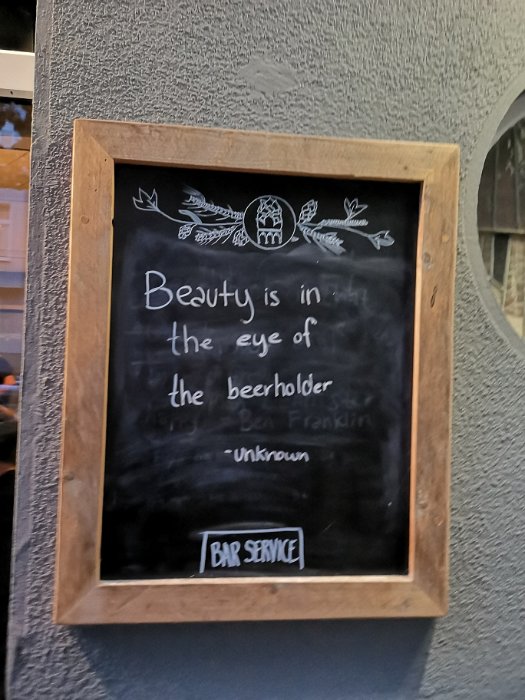 Beauty is in
the eye of
the beerholder
Ben Franklin
-unknown
BAR SERVICE